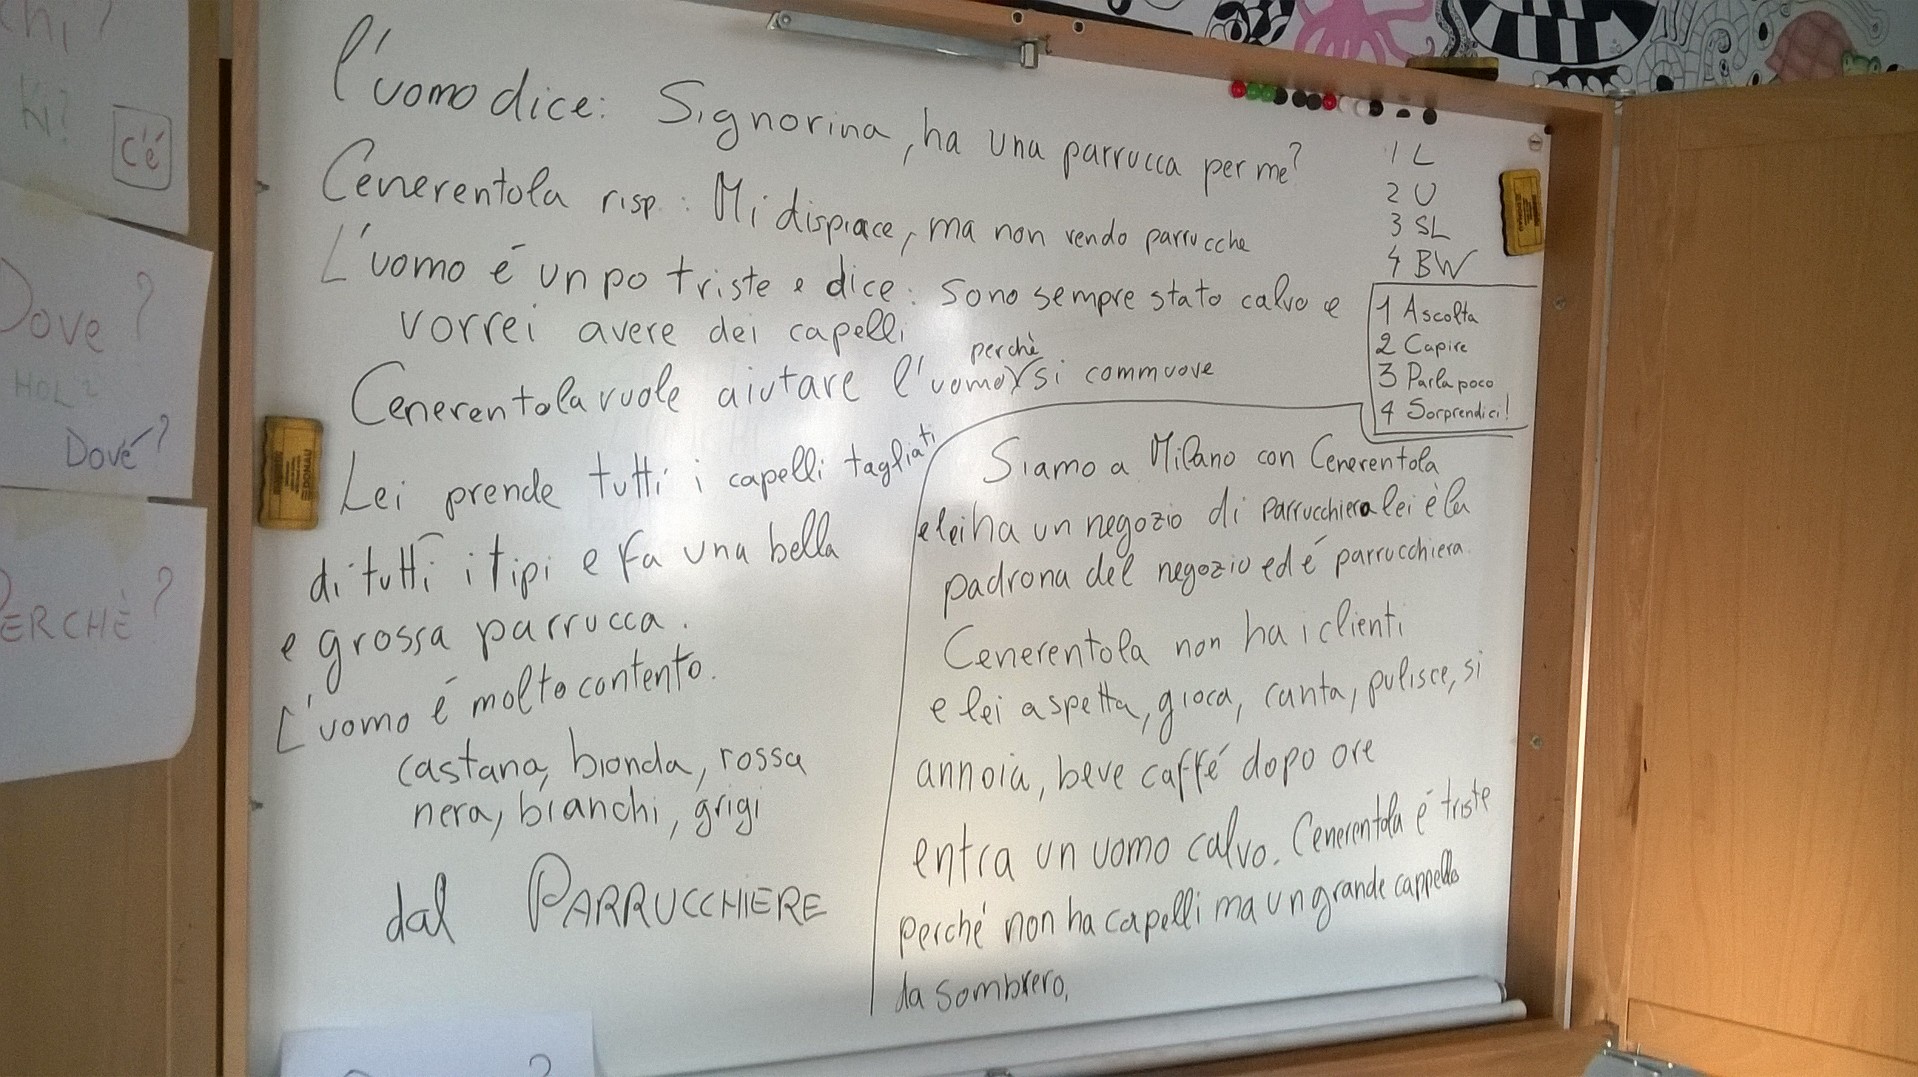 l'uomo dice: Signorina, ha una parrucca per me?
Cenerentola risp.: Mi dispiace, ma non vendo parrucche
L'uomo é un po triste e dice: sono sempre stato calvo e
vorrei avere dei capelli
perchè
Cenerentola vuole aiutare l'uomo si commuove
Lei prende tutti i capelli tagliati
di tutti i tipi e fa una bella
e grossa parrucca.
L'uomo é molto contento.
castana, bionda, rossa
nera, bianchi, grigi
dal PARRUCCHIERE
1 L
2 U
3 SL
4 BW
1 Ascolta
2 Capire
3 Parla poco
4 Sorprendici!
Siamo a Milano con Cenerentola
e lei ha un negozio di parrucchiera lei è la
padrona del negozio ed é parrucchiera.
Cenerentola non ha i clienti
e lei aspetta, gioca, canta, pulisce, si
annoia, beve caffé dopo ore
entra un uomo calvo. Cenerentola é triste
perché non ha capelli ma un grande cappello
da sombrero.
Ki?
c'é
Dove?
HOL?
Dové?
PERCHÈ?
DONAU